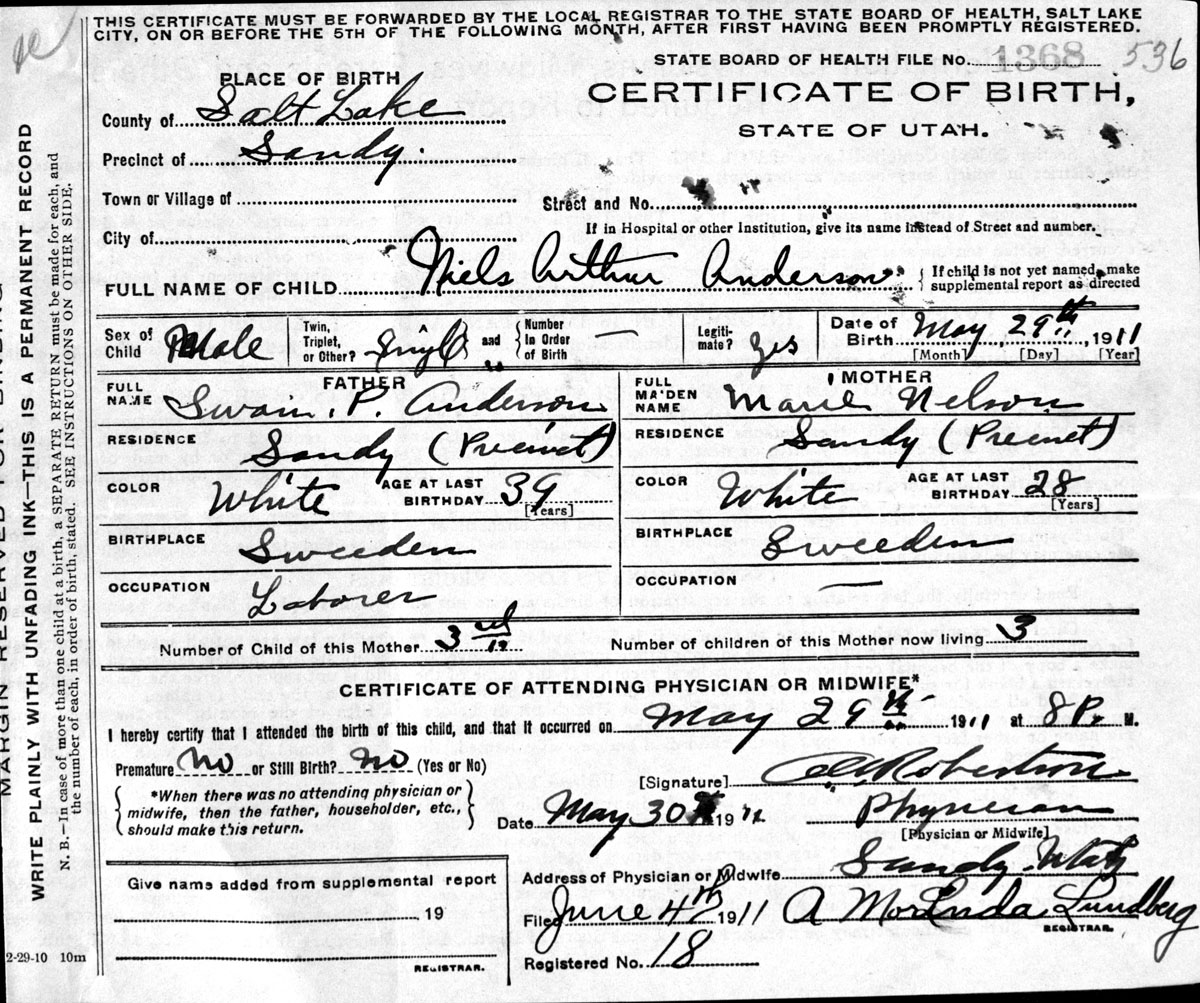 THIS CERTIFICATE MUST BE FORWARDED BY THE LOCAL REGISTRAR TO THE STATE BOARD OF HEALTH, SALT LAKE
CITY, ON OR BEFORE THE 5TH OF THE FOLLOWING MONTH, AFTER FIRST HAVING BEEN PROMPTLY REGISTERED.
STATE BOARD OF HEALTH FILE No. 1368 536
PLACE OF BIRTH
CERTIFICATE OF BIRTH,
STATE OF UTAH.
County of Salt Lake
Precinct of Sandy.
Town or Village of
Street and No.
City of
If in Hospital or other Institution, give its name instead of Street and number.
FULL NAME OF CHILD Niels Arthur Anderson { If child is not yet named, make
supplemental report as directed
Sex of Child Male
Twin, Triplet, or Other? and { Number In Order of Birth
Legitimate? Yes
Date of Birth May 29th, 1911
[Month] [Day] [Year]
FATHER
FULL NAME Swain. P. Anderson
RESIDENCE Sandy (Precinct)
COLOR White AGE AT LAST BIRTHDAY 39
[Years]
BIRTHPLACE Sweeden
OCCUPATION Laborer
MOTHER
FULL MAIDEN NAME Marie Nelson
RESIDENCE Sandy (Precinct)
COLOR White AGE AT LAST BIRTHDAY 28
[Years]
BIRTHPLACE Sweeden
OCCUPATION —
Number of Child of this Mother 3rd Number of children of this Mother now living 3
CERTIFICATE OF ATTENDING PHYSICIAN OR MIDWIFE*
I hereby certify that I attended the birth of this child, and that it occurred on May 29th 1911 at 8 P. M.
Premature No or Still Birth? No (Yes or No)
[Signature] Robertson
{ *When there was no attending physician or
midwife, then the father, householder, etc.,
should make this return. }
Date May 30th 19 Physician
[Physician or Midwife]
Address of Physician or Midwife Sandy Utah
Give name added from supplemental report
19
REGISTRAR.
Filed June 4th 1911 A Lundberg
REGISTRAR.
Registered No. 18
2-29-10 10m
MARGIN RESERVED FOR BINDING
WRITE PLAINLY WITH UNFADING INK—THIS IS A PERMANENT RECORD
N. B.—In case of more than one child at a birth, a SEPARATE RETURN must be made for each, and
the number of each, in order of birth, stated. SEE INSTRUCTIONS ON OTHER SIDE.